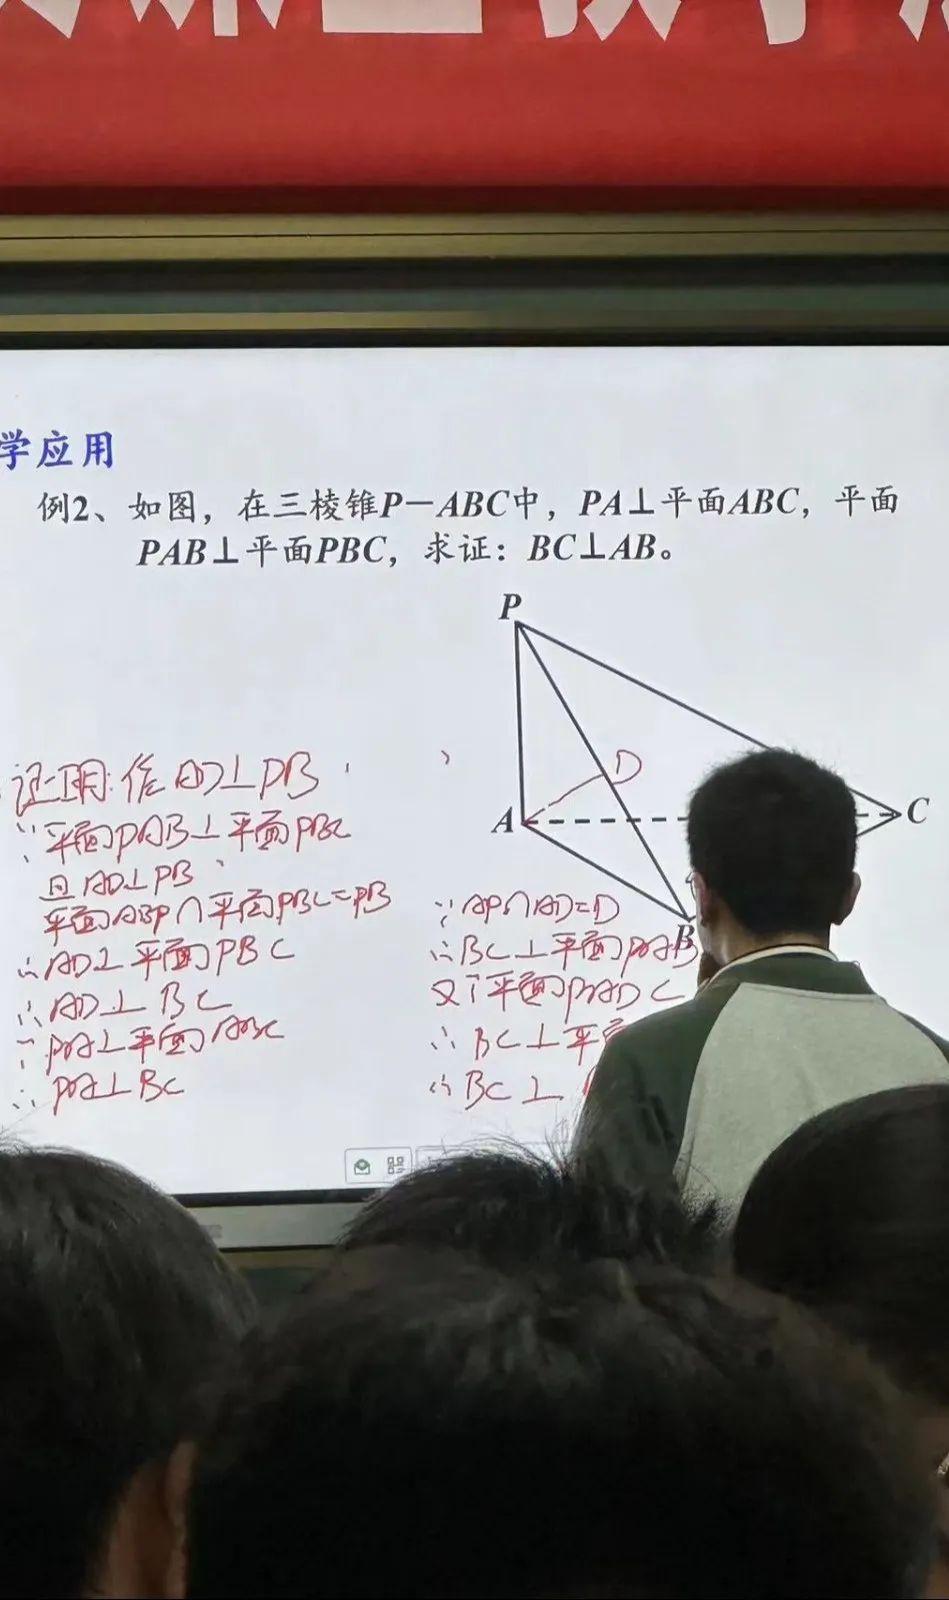 学应用
例2、如图，在三棱锥P－ABC中，PA⊥平面ABC，平面
PAB⊥平面PBC，求证：BC⊥AB。
P
D
A
C
B
证明：作AD⊥PB
∵平面PAB⊥平面PBC
且AD⊥PB
平面ABP∩平面PBC=PB
∴AD⊥平面PBC
∴AD⊥BC
∵PA⊥平面ABC
∴PA⊥BC
∵AP∩AD=D
∴BC⊥平面PAB
又平面PADC
∴BC⊥平
∴BC⊥